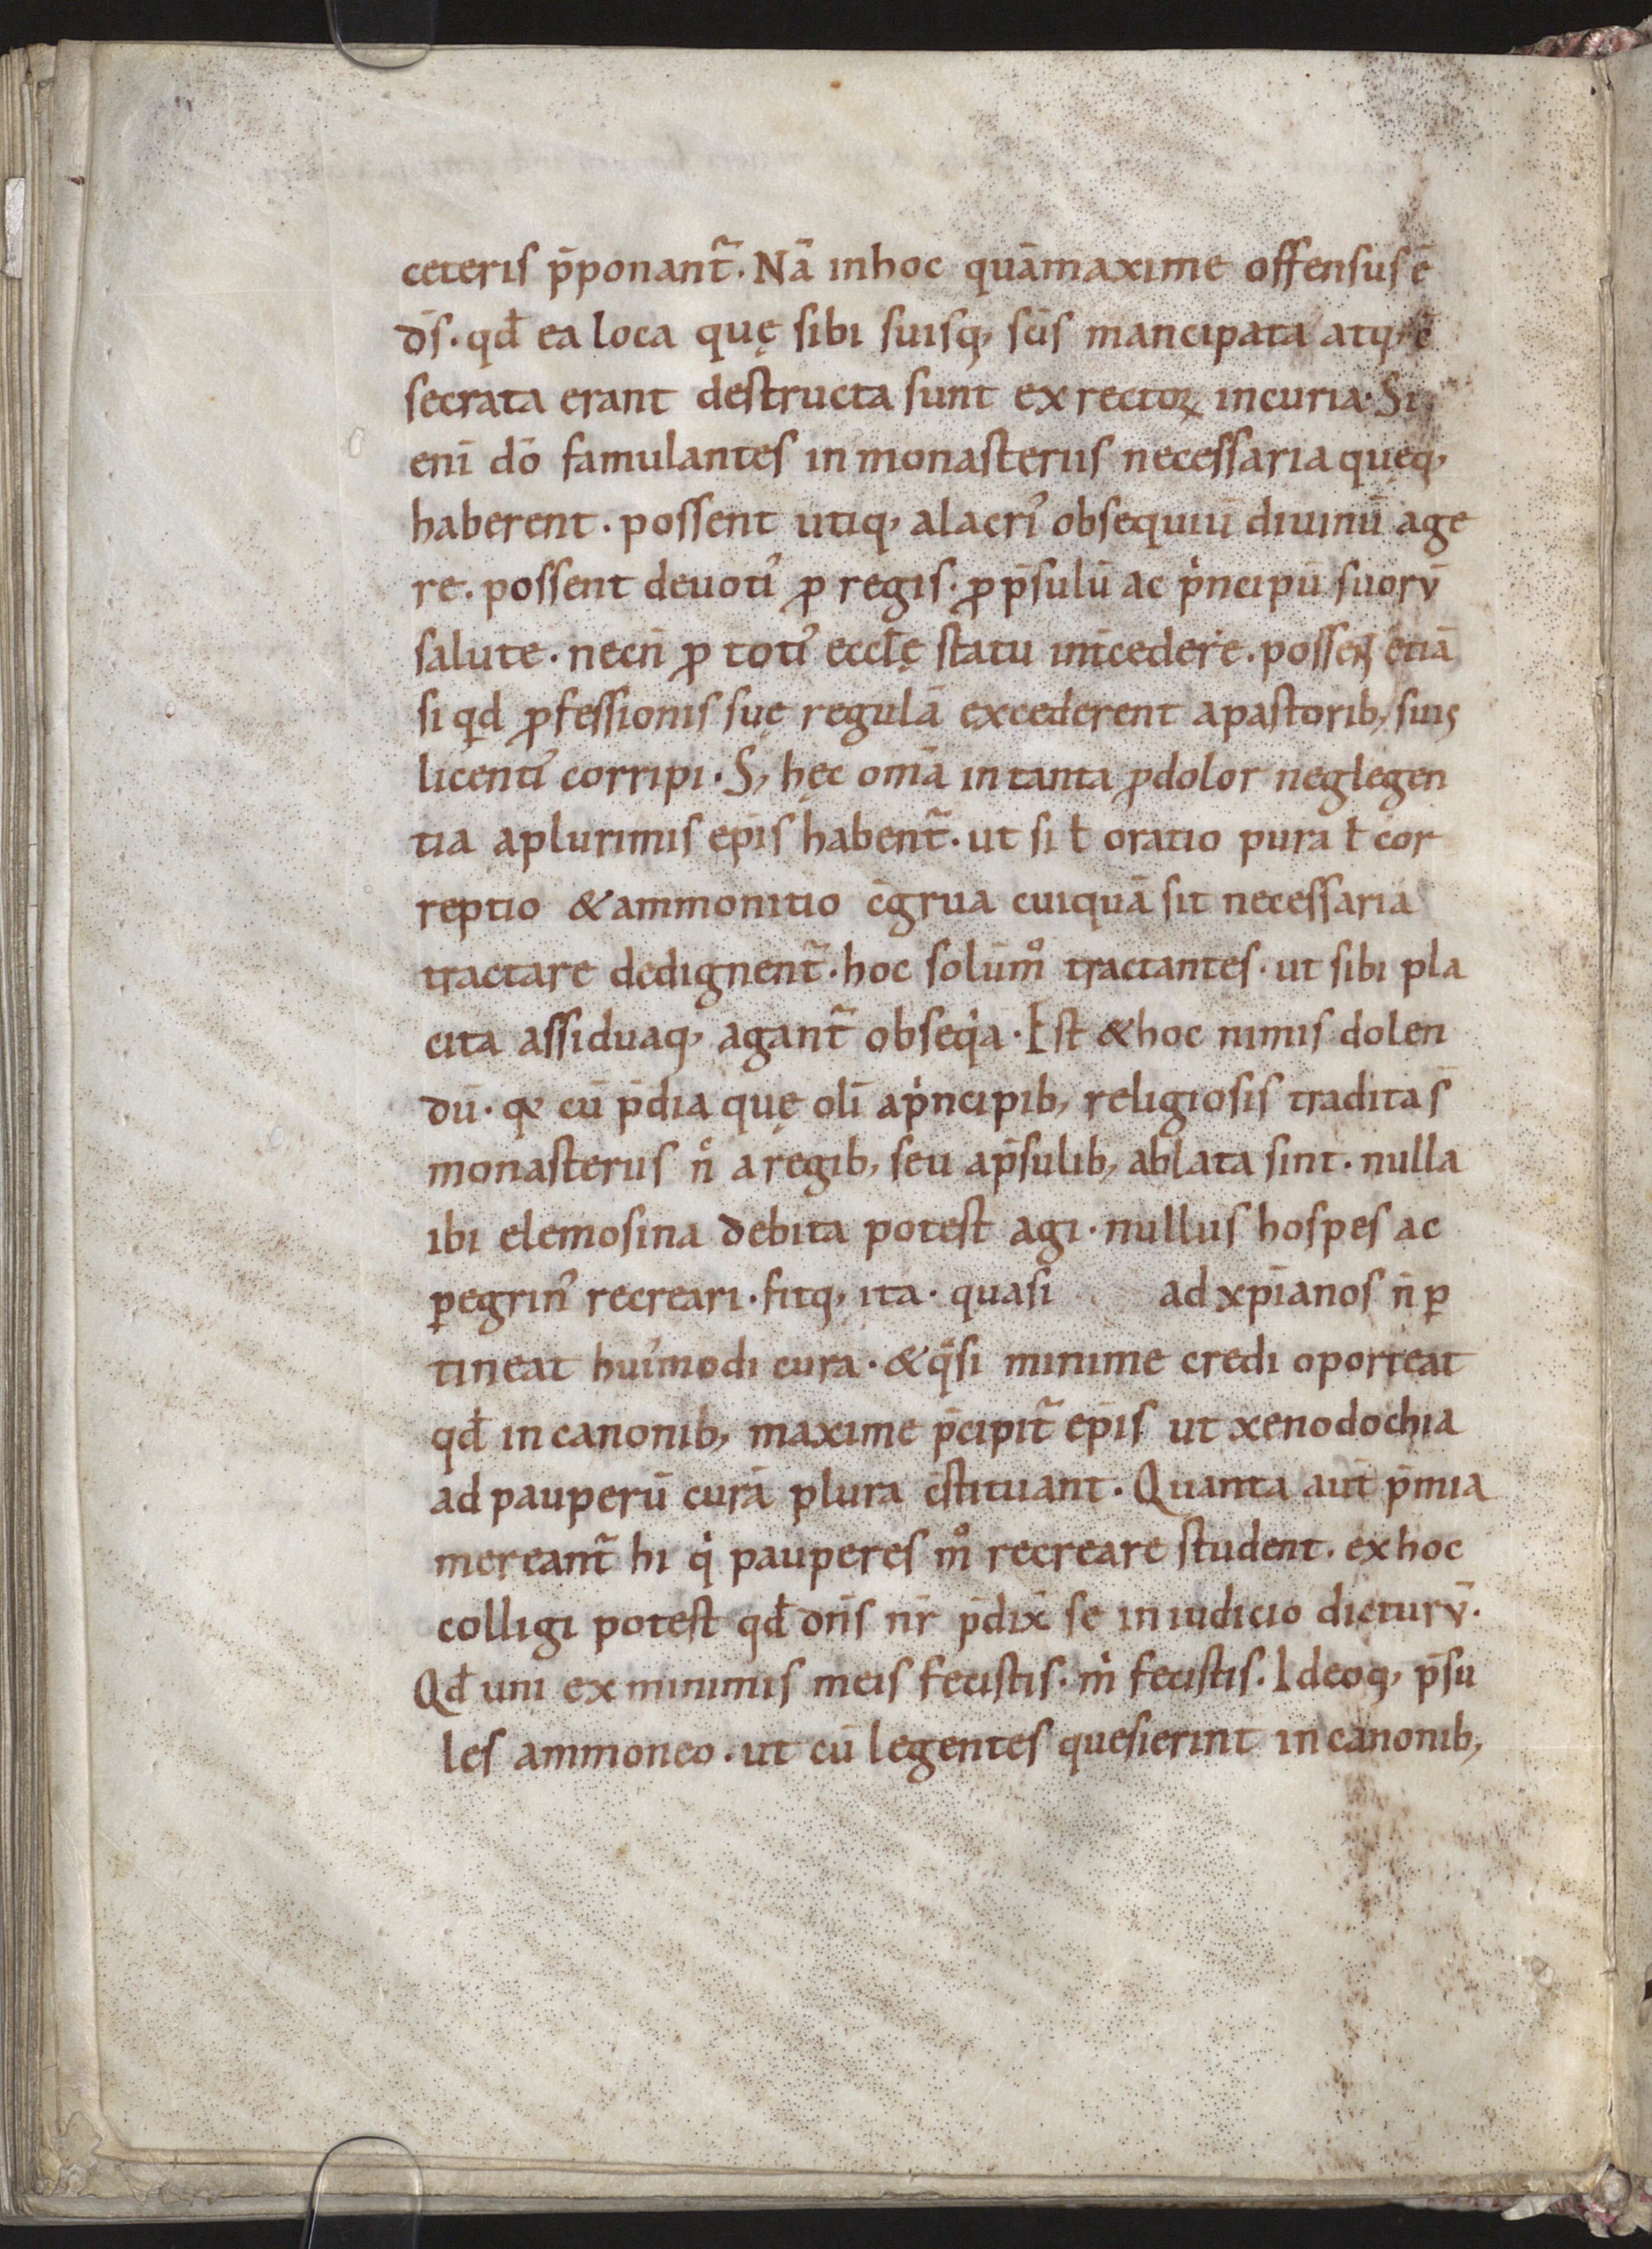 ceteris p̄ponant̃. Nā inhoc quāmaxime offensus ē
d̄s. qđ ea loca quę sibi suisq, sc̄is mancipata atq, c̄
secrata erant destructa sunt ex rectoꝝ incuria. Si
eni dō famulantes in monasteriis necessaria quęq,
haberent. possent utiq, alacri᾽ obsequiū diuinū age
re. possent deuoti᾽ ꝓ regis. ꝓ p̄sulū ac pͥncipū suorv̄
salute. necn̄ ꝓ toti᾽ eccłę statu int̄cedere. possent etiā
si qͥd ꝓfessionis suę regulā excederent a pastorib, suis
licenti᾽ corripi. S, hęc om̄a in tanta ꝓdolor neglegen
tia aplurimis ep̄is habent̃. ut si ł oratio pura ł cor
reptio & ammonitio c̄grua cuiquā sit necessaria
tractare dedignent̃. hoc solūm̊ tractantes. ut sibi pla
cita assiduaq, agant̃ obseqͥa. Est & hoc nimis dolen
dū. qꝫ cū p̄dia quę oli apͥncipib, religiosis tradita s̄
monasteriis n̊ a regib, seu ap̄sulib, ablata sint. nulla
ibi elemosina debita potest agi. nullus hospes ac
ꝑegrin᾽ recreari. fitq, ita. quasi ad xp̄ianos n̄ ꝑ
tineat hui᾽modi cura. & qͣsi minime credi oporteat
qđ in canonib, maxime p̄cipit̃ ep̄is ut xenodochia
ad pauperū curā plura c̄stituant. Quanta aut̄ p̄mia
mereant̃ hi qͥ pauperes m̊ recreare student. ex hoc
colligi potest qđ dn̄s nr̄ p̄dix̄ se in iudicio dicturv̄.
Qđ uni ex minimis meis fecistis. mͥ fecistis. Ideoq, p̄su
les ammoneo. ut cū legentes quesierint in canonib,